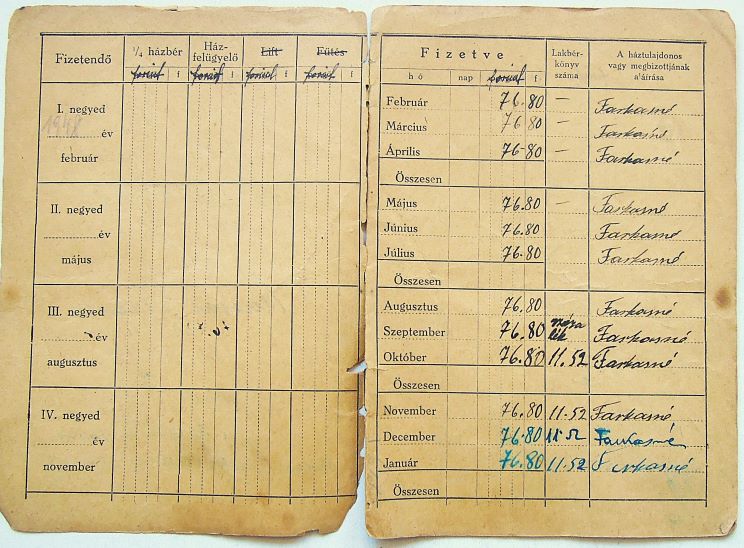 Fizetendő ¼ házbér Ház-felügyelő Lift Fűtés
forint f forint f forint f forint f
I. negyed
1948 év
február
II. negyed
év
május
III. negyed
év
augusztus
IV. negyed
év
november
Fizetve Lakbér-könyv száma A háztulajdonos vagy megbizottjának aláírása
hó nap forint f
Február 76.80 — Farkasné
Március 76.80 — Farkasné
Április 76-80 — Farkasné
Összesen
Május 76.80 — Farkasné
Június 76.80 Farkasné
Július 76.80 Farkasné
Összesen
Augusztus 76.80 Farkasné
Szeptember 76.80 Farkasné
Október 76.80 11.52 Farkasné
Összesen
November 76.80 11.52 Farkasné
December 76.80 11.52 Farkasné
Január 76.80 11.52 Farkasné
Összesen